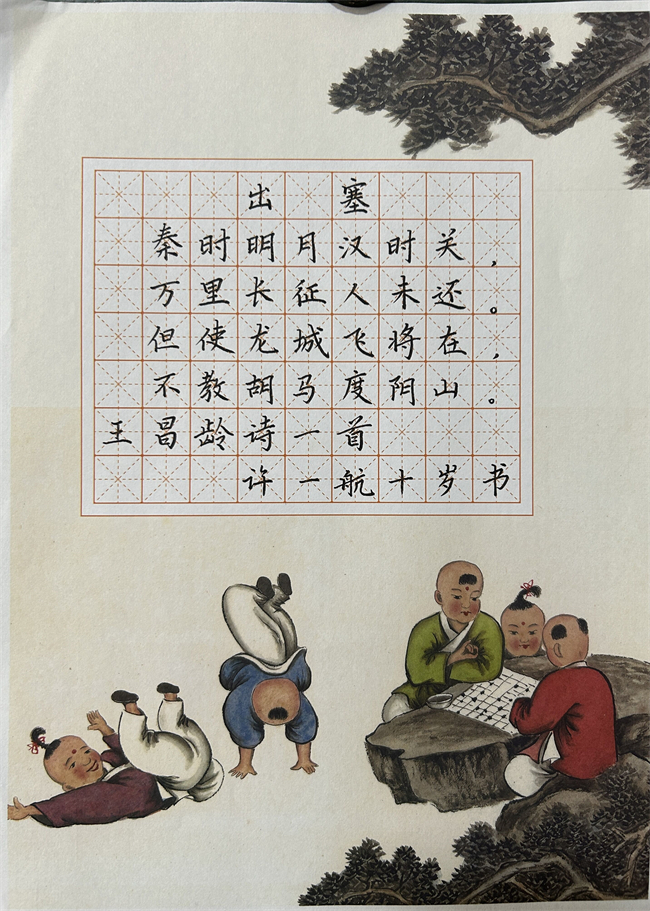 出塞
秦时明月汉时关，
万里长征人未还。
但使龙城飞将在，
不教胡马度阴山。
王昌龄诗一首
许一航十岁书